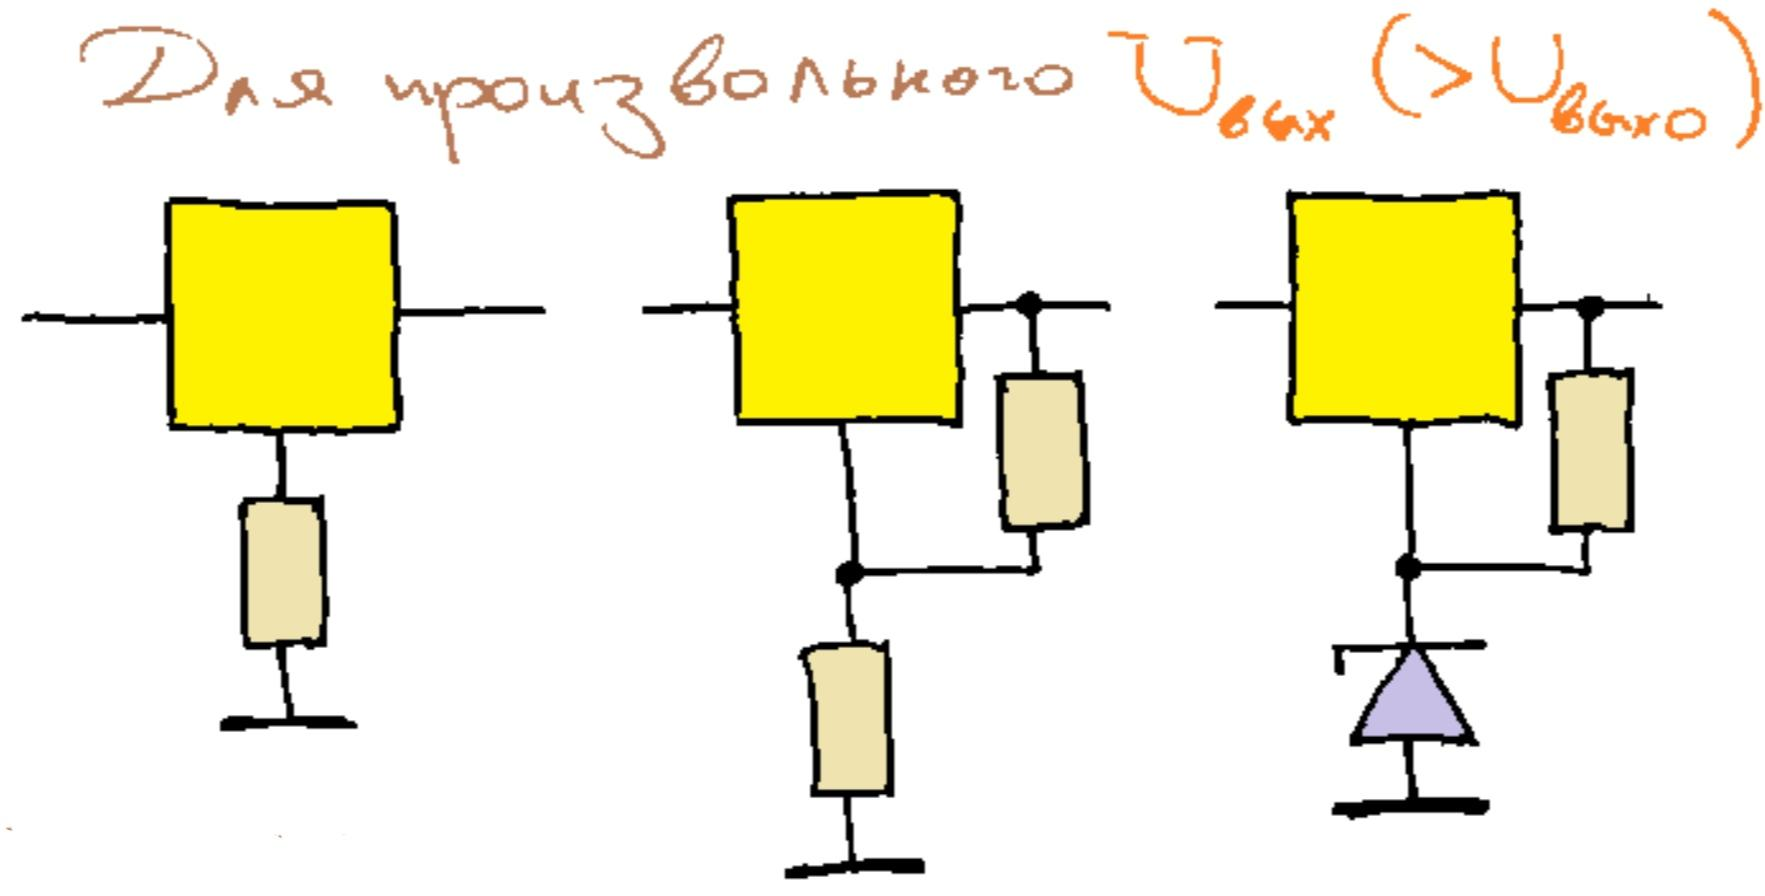 Для произвольного Uвых (>Uвых0)